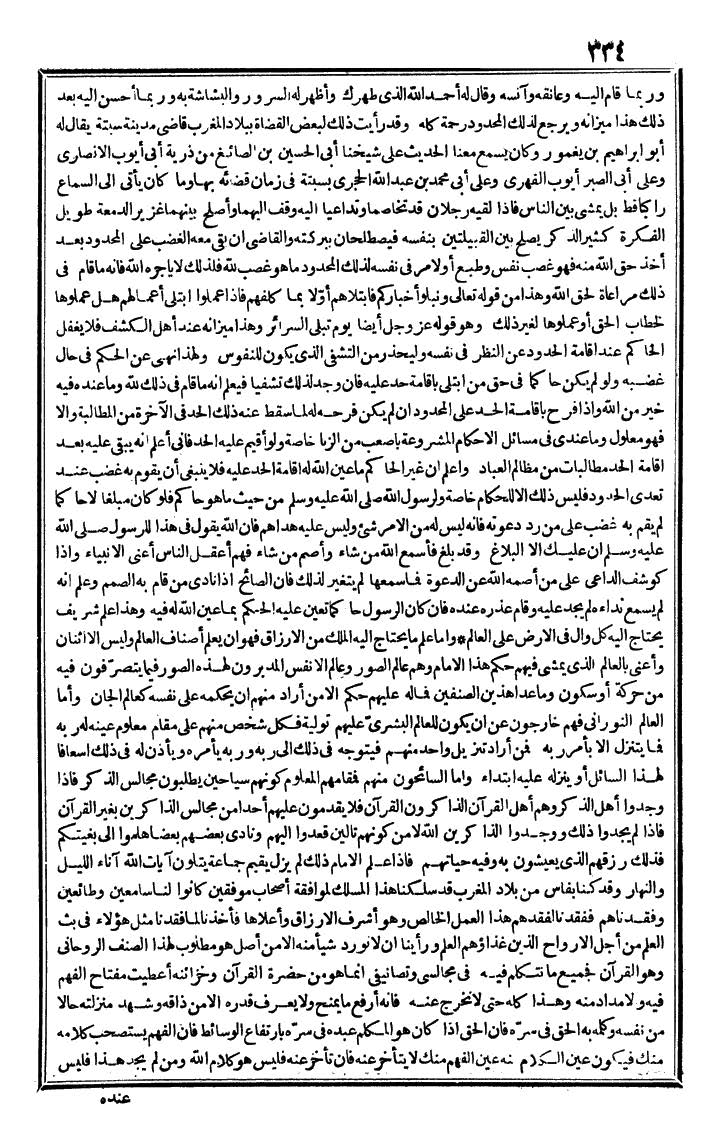 ٣٣٤
وربما قام اليه وعانقه وآنسه وقال له أحمد الله الذى طهرك وأظهر له السرور والبشاشة به وربما أحسن اليه بعد
ذلك هذا ميزانه ويرجع لذلك المحدود رحمة كله وقد رأيت ذلك لبعض القضاة ببلاد المغرب قاضى مدينة سبتة يقال له
أبو ابراهيم بن يغمور وكان يسمع معنا الحديث على شيخنا أبى الحسين بن الصائغ من ذرية أبى أيوب الانصارى
وعلى أبى الصبر أيوب الفهرى وعلى أبى محمد بن عبد الله الحجرى بسبتة فى زمان قضائه بها وما كان يأتى الى السماع
راكبا قط بل يمشى بين الناس فاذا لقيه رجلان قد تخاصما وتداعيا اليه وقف اليهما وأصلح بينهما غزير الدمعة طويل
الفكرة كثير الذكر يصلح بين القبيلتين بنفسه فيصطلحان ببركته والقاضى ان بقى معه الغضب على المحدود بعد
أخذ حق الله منه فهو غضب نفس وطبع أولامر فى نفسه لذلك المحدود ما هو غضب لله فلذلك لا يأجره الله فانه ما قام فى
ذلك مراعاة لحق الله وهذا من قوله تعالى ونبلوا أخباركم فابتلاهم أوّلا بما كلفهم فاذا عملوا ابتلى أعمالهم هل عملوها
لخطاب الحق أو عملوها لغير ذلك وهو قوله عز وجل أيضا يوم تبلى السرائر وهذا ميزانه عند أهل الكشف فلا يغفل
الحاكم عند اقامة الحدود عن النظر فى نفسه وليحذر من التشفى الذى يكون للنفوس ولهذا نهى عن الحكم فى حال
غضبه ولو لم يكن حاكما فى حق من ابتلى باقامة حد عليه فان وجد لذلك تشفيا فيعلم انه ما قام فى ذلك لله وما عنده فيه
خير من الله واذا فرح باقامة الحد على المحدود ان لم يكن فرحه له لما سقط عنه ذلك الحد فى الآخرة من المطالبة والا
فهو معلول وما عندى فى مسائل الاحكام المشروعة بأصعب من الزنا خاصة ولو أقيم عليه الحد فانى أعلم انه يبقى عليه بعد
اقامة الحد مطالبات من مظالم العباد واعلم ان غير الحاكم ما عين الله له اقامة الحد عليه فلا ينبغى أن يقوم به غضب عند
تعدى الحدود فليس ذلك الا للحكام خاصة ولرسول الله صلى الله عليه وسلم من حيث ما هو حاكم فلو كان مبلغا لا حاكما
لم يقم به غضب على من رد دعوته فانه ليس له من الامر شئ وليس عليه هداهم فان الله يقول فى هذا للرسول صلى الله
عليه وسلم ان عليك الا البلاغ وقد بلغ فأسمع الله من شاء وأصم من شاء فهم أعقل الناس أعنى الانبياء واذا
كوشف الداعى على من أصمه الله عن الدعوة فما سمعها لم يتغير لذلك فان الصائح اذا نادى من قام به الصمم وعلم انه
لم يسمع نداءه لم يجد عليه وقام عذره عنده فان كان الرسول حاكما تعين عليه الحكم بما عين الله له فيه وهذا علم شريف
يحتاج اليه كل وال فى الارض على العالم * واما علم ما يحتاج اليه الملك من الارزاق فهو ان يعلم أصناف العالم وليس الا اثنان
وأعنى بالعالم الذى يمشى فيهم حكم هذا الامام وهم عالم الصور وعالم الانفس المدبرون لهذه الصور فيما يتصرّفون فيه
من حركة أو سكون وما عدا هذين الصنفين فما له عليهم حكم الا من أراد منهم ان يحكمه على نفسه كعالم الجان وأما
العالم النورانى فهم خارجون عن ان يكون للعالم البشرىّ عليهم تولية فكل شخص منهم على مقام معلوم عينه له ربه
فما يتنزل الا بأمر ربه فمن أراد تنزيل واحد منهم فيتوجه فى ذلك الى ربه وربه يأمره ويأذن له فى ذلك اسعافا
لهذا السائل أو ينزله عليه ابتداء واما السائحون منهم فمقامهم المعلوم كونهم سياحين يطلبون مجالس الذكر فاذا
وجدوا أهل الذكر وهم أهل القرآن الذاكرون القرآن فلا يقدمون عليهم أحدا من مجالس الذاكرين بغير القرآن
فاذا لم يجدوا ذلك ووجدوا الذاكرين الله لا من كونهم تالين قعدوا اليهم ونادى بعضهم بعضا هلموا الى بغيتكم
فذلك رزقهم الذى يعيشون به وفيه حياتهم فاذا علم الامام ذلك لم يزل يقيم جماعة يتلون آيات الله آناء الليل
والنهار وقد كنا بفاس من بلاد المغرب قد سلكنا هذا المسلك لموافقة أصحاب موفقين كانوا لنا سامعين وطائعين
وفقدناهم ففقدنا لفقدهم هذا العمل الخالص وهو أشرف الارزاق وأعلاها فأخذنا لما فقدنا مثل هؤلاء فى بث
العلم من أجل الارواح الذين غذاؤهم العلم ورأينا ان لا نورد شيأ منه الا من أصل هو مطلوب لهذا الصنف الروحانى
وهو القرآن فجميع ما نتكلم فيه فى مجالسى وتصانيفى انما هو من حضرة القرآن وخزائنه أعطيت مفتاح الفهم
فيه والامداد منه وهذا كله حتى لا نخرج عنه فانه أرفع ما يمنح ولا يعرف قدره الا من ذاقه وشهد منزلته حالا
من نفسه وكله به الحق فى سرّه فان الحق اذا كان هو المكلم عبده فى سرّه بارتفاع الوسائط فان الفهم يستصحب كلامه
منك فيكون عين الكلام منه عين الفهم منك لا يتأخر عنه فان تأخر عنه فليس هو كلام الله ومن لم يجد هذا فليس
عنده